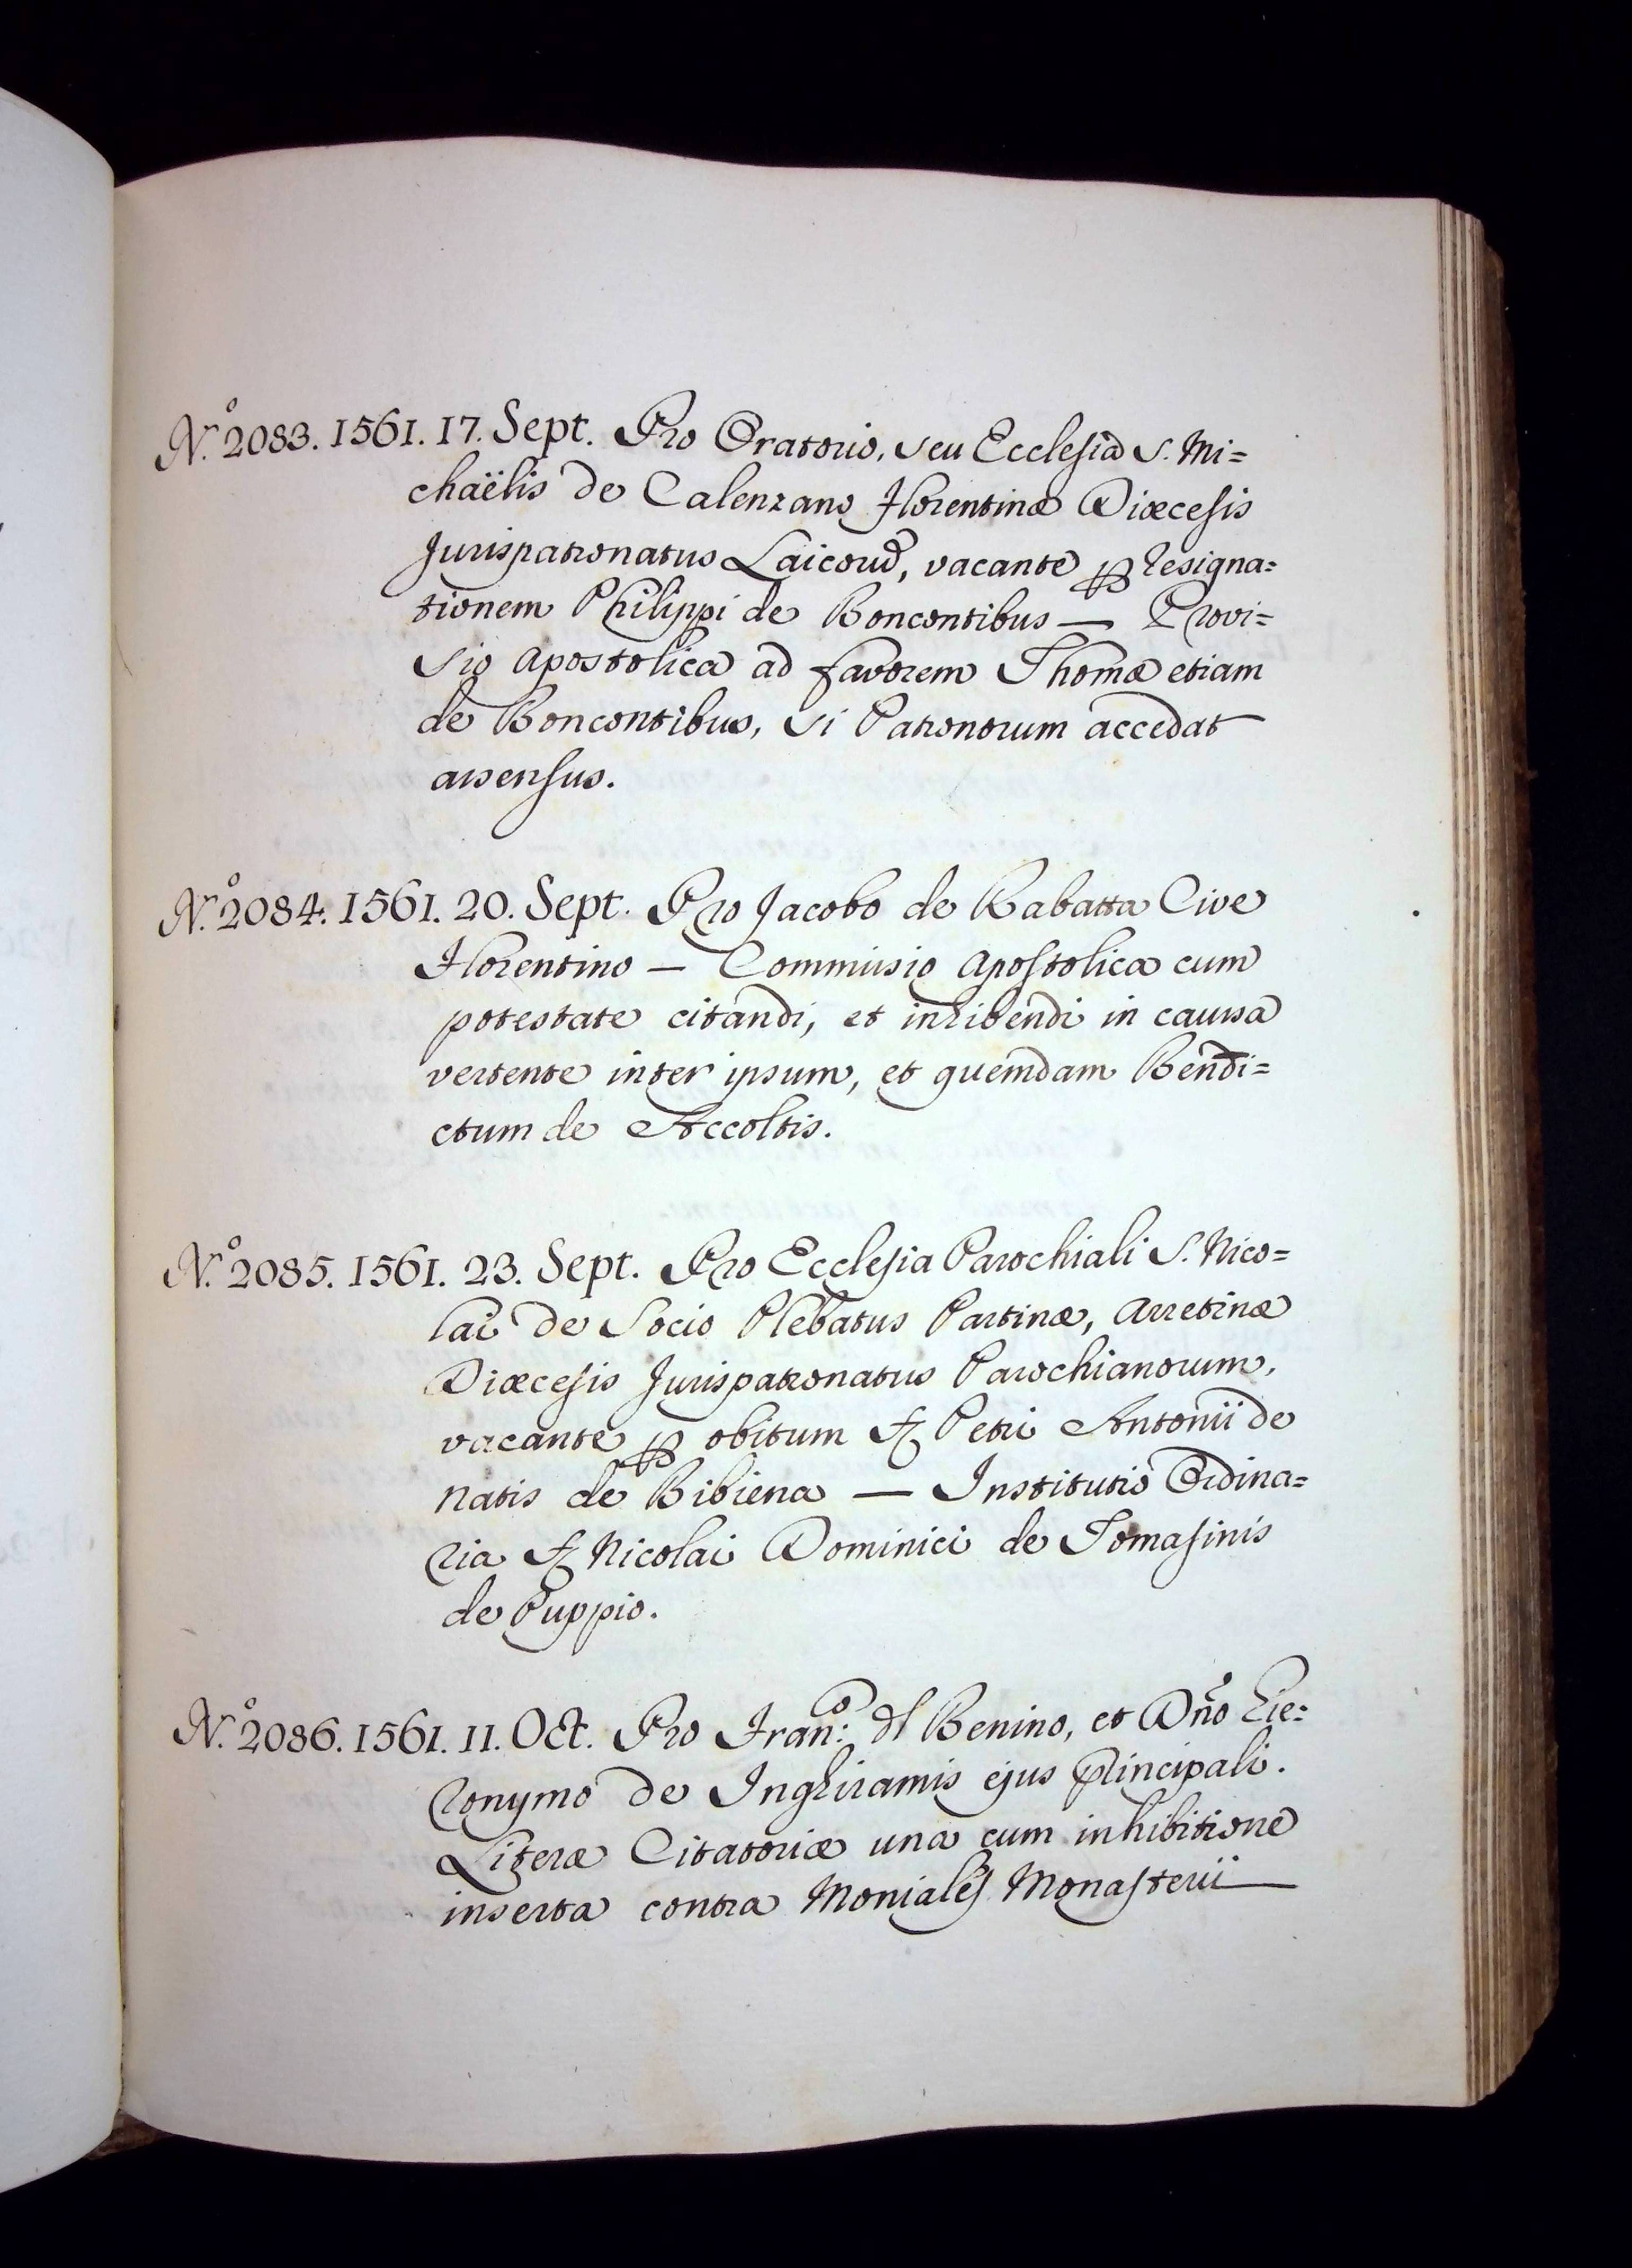 N.º 2083. 1561. 17. Sept. Pro Oratorio, seu Ecclesia S. Mi=
chaëlis de Calenzano Florentinæ Diœcesis
Jurispatronatus Laicorũ, vacante ꝑ resigna=
tionem Philippi de Boncontibus — Provi=
sio Apostolica ad favorem Thomæ etiam
de Boncontibus, si Patronorum accedat
assensus.
N.º 2084. 1561. 20. Sept. Pro Jacobo de Rabatta Cive
Florentino — Commissio Apostolica cum
potestate citandi, et inhibendi in caussa
vertente inter ipsum, et quemdam Bendi=
ctum de Accoltis.
N.º 2085. 1561. 23. Sept. Pro Ecclesia Parochiali S. Nico=
lai de Socio Plebatus Partinæ, Arretinæ
Diœcesis Jurispatronatus Parochianorum,
vacante ꝑ obitum Petri Antonii de
Natis de Bibiena — Institutio Ordina=
ria Nicolai Dominici de Tomasinis
de Puppio.
N.º 2086. 1561. 11. Oct. Pro Fran:co dl Benino, et Dño Hie=
ronymo de Inghiramis ejus principali.
Literæ Citatoriæ una cum inhibitione
inserta contra Moniales Monasterii